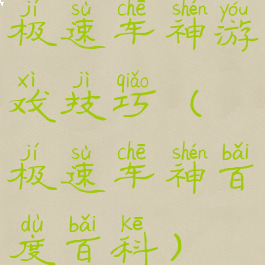 jí sù chē shén yóu
极速车神游
xì jì qiǎo
戏技巧（
jí sù chē shén bǎi
极速车神百
dù bǎi kē
度百科）